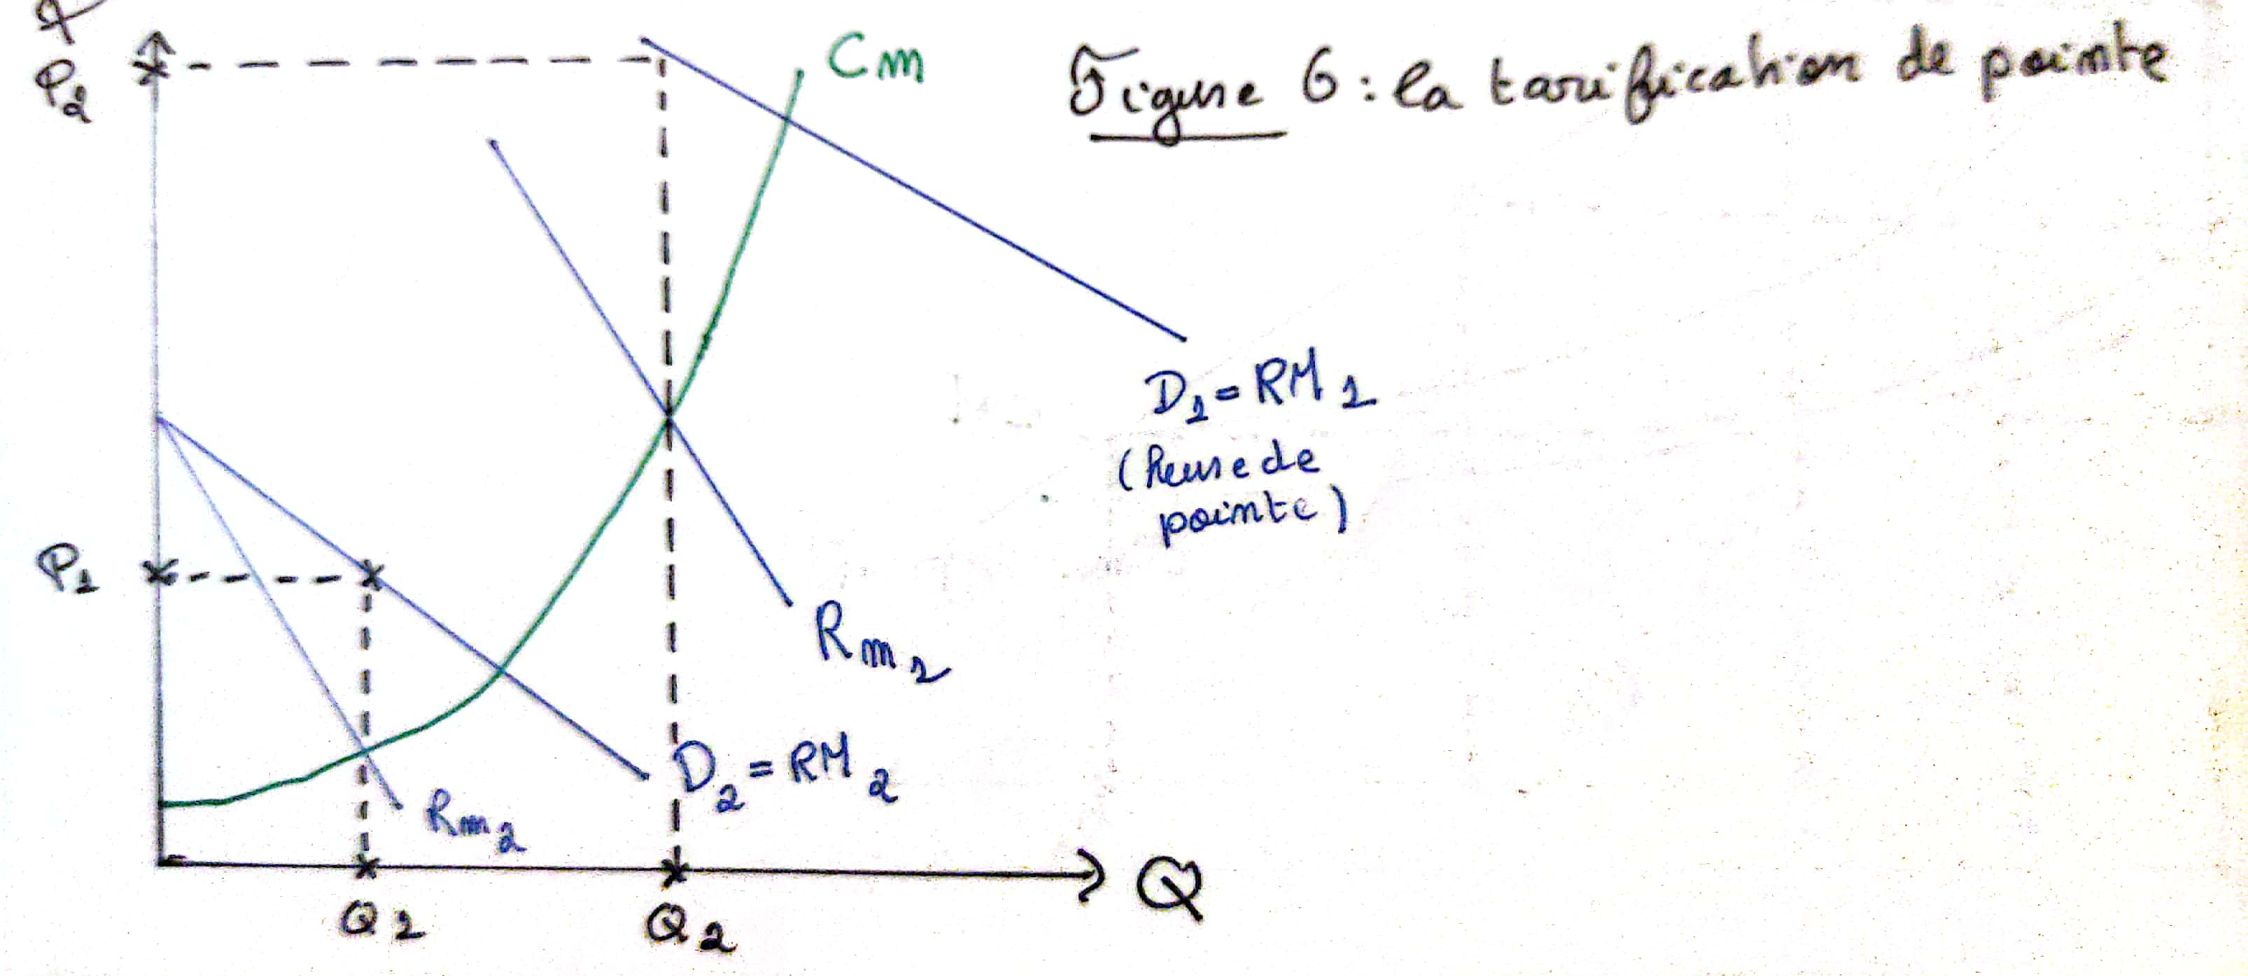 P2
Cm
Figure 6 : la tarification de pointe
D1 = RM1
(Heure de
pointe)
P1
Rm1
D2 = RM2
Rm2
Q
Q1
Q2